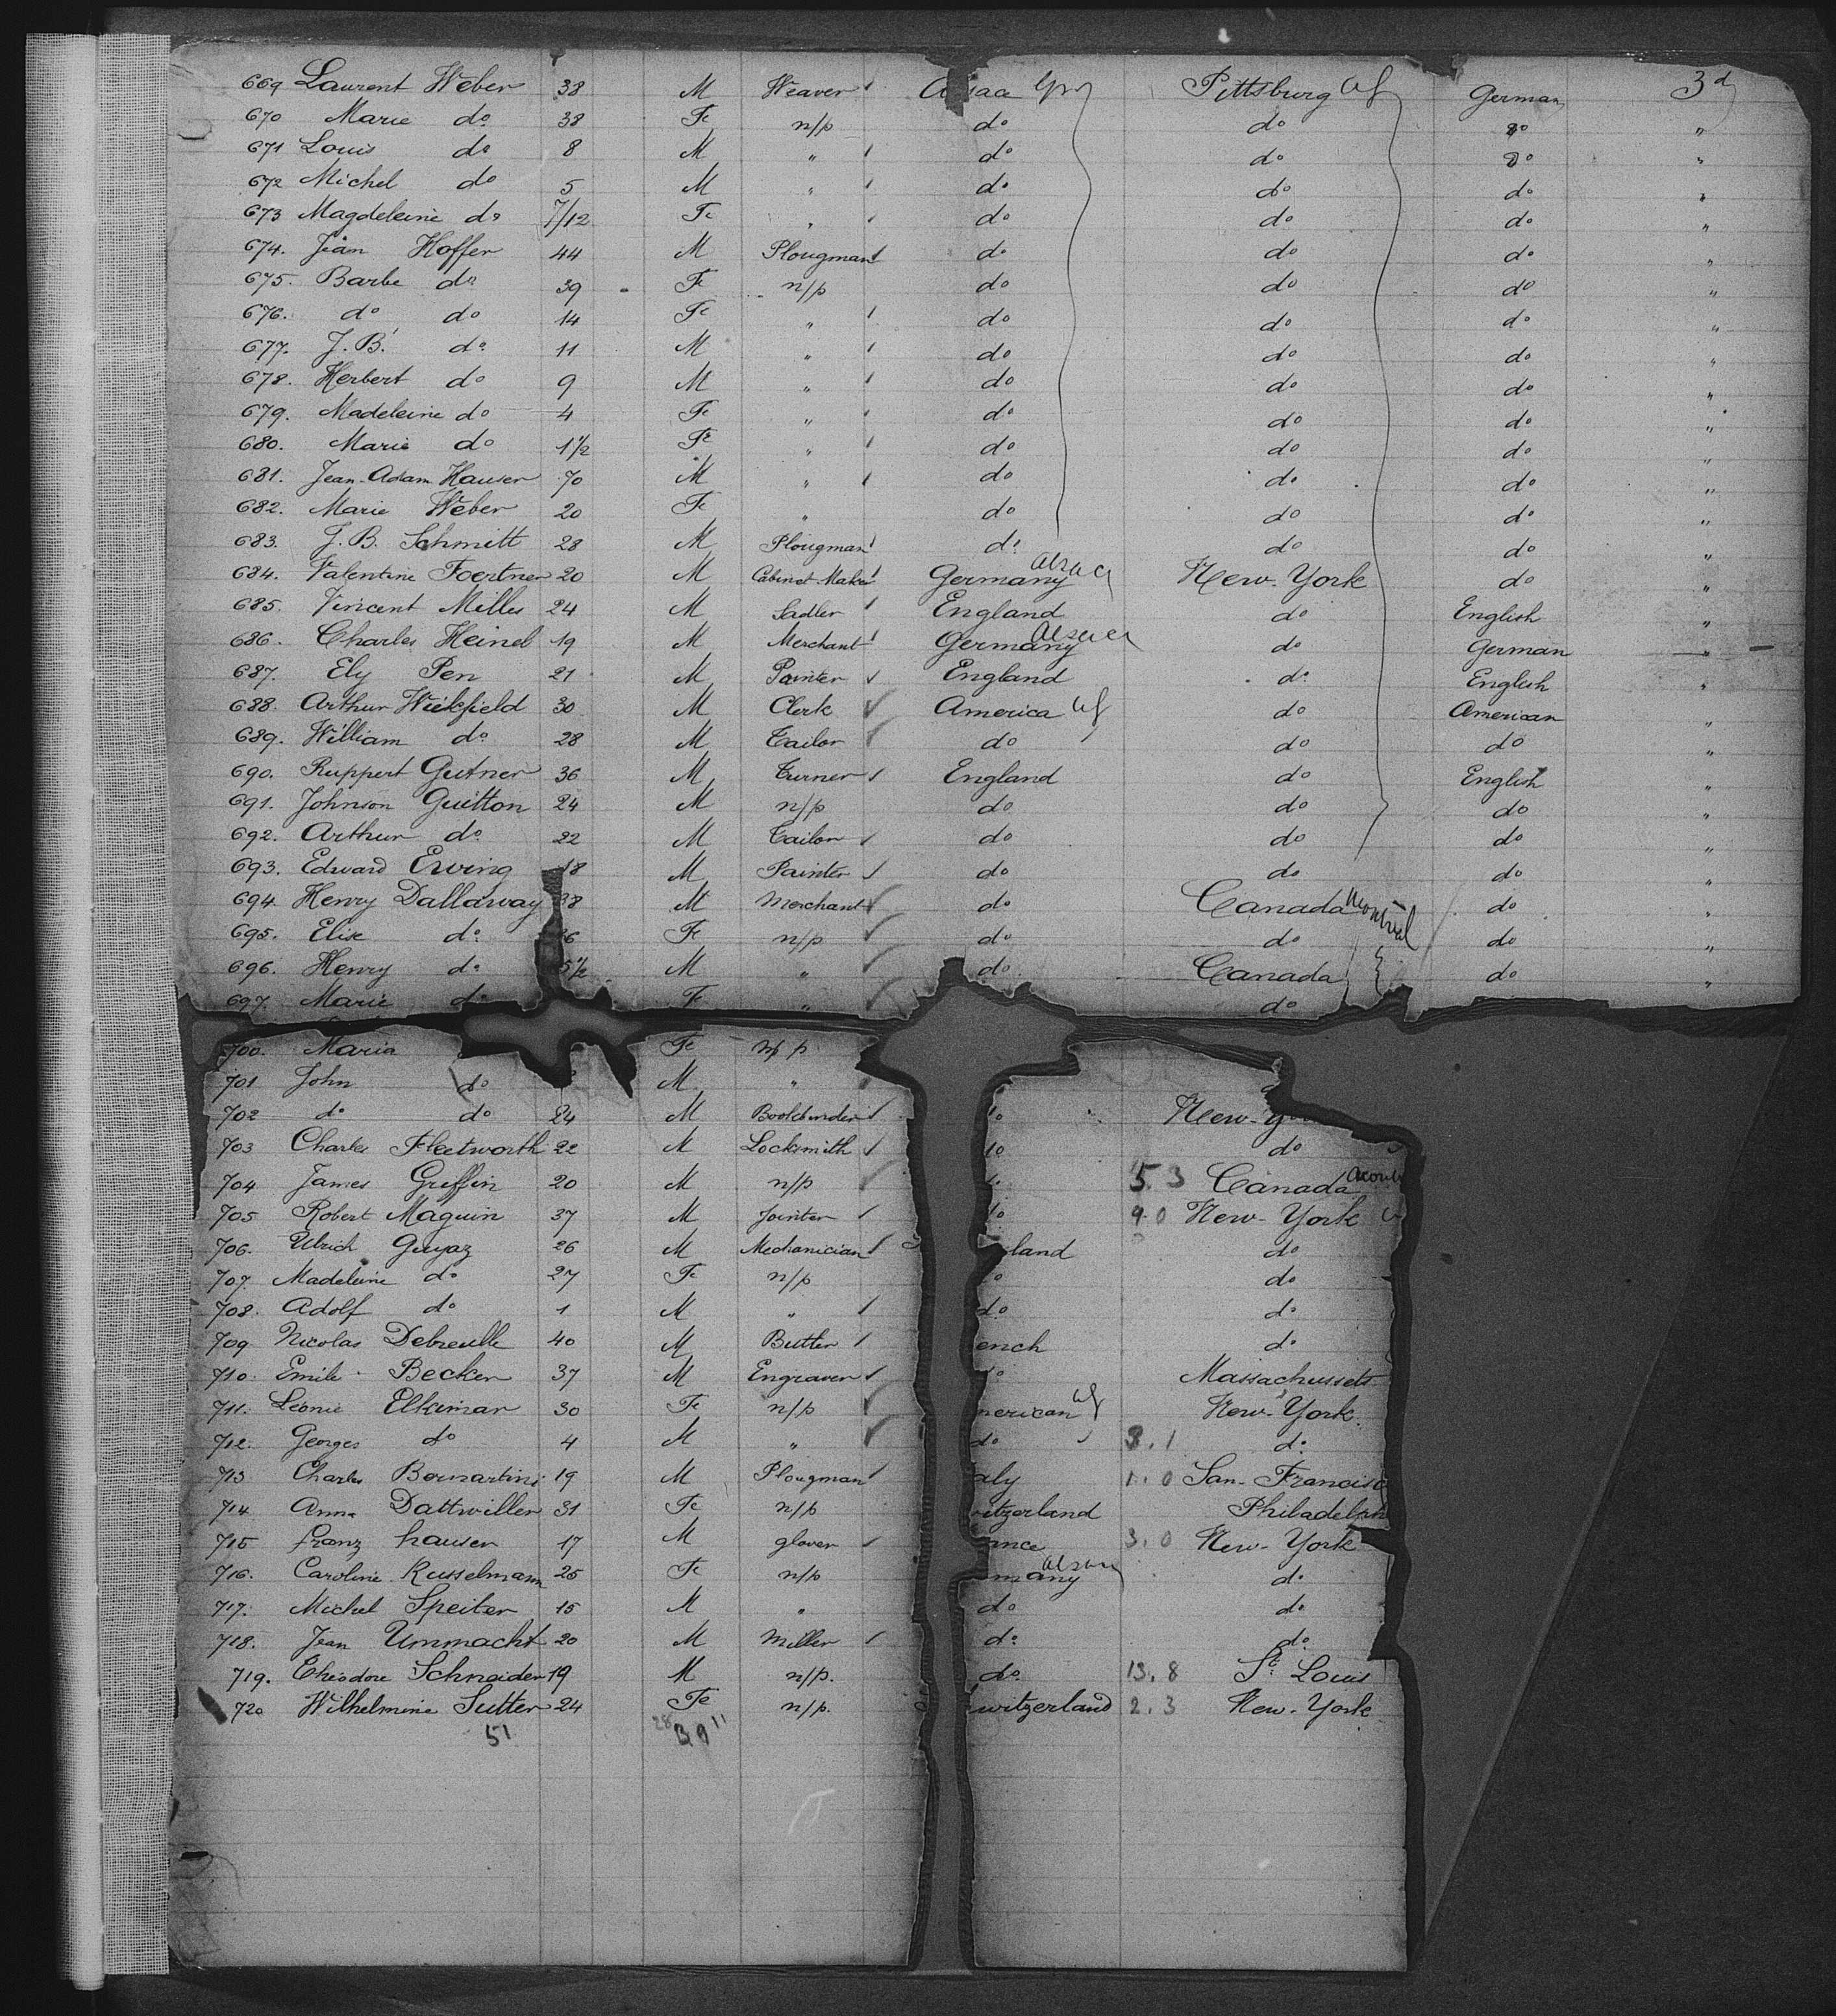 669 Laurent Weber 38 M Weaver Alsace Pittsburg German 3d
670 Marie do 38 Fe n/p do do do "
671 Louis do 8 M " do do do "
672 Michel do 5 M " do do do "
673 Magdeleine do 7/12 Fe " do do do "
674. Jean Hoffer 44 M Plougman do do do "
675. Barbe do 39 Fe n/p do do do "
676. do do 14 Fe " do do do "
677. J. B. do 11 M " do do do "
678. Herbert do 9 M " do do do "
679. Madeleine do 4 Fe " do do do "
680. Marie do 1 1/2 Fe " do do do "
681. Jean-Adam Hauser 70 M " do do do "
682. Marie Weber 20 Fe " do do do "
683. J. B. Schmitt 28 M Plougman do do do "
684. Valentine Foertner 20 M Cabinet-Maker Germany Alsace New-York do "
685. Vincent Milles 24 M Sadler England do English "
686. Charles Heinel 19 M Merchant Germany Alsace do German "
687. Ely Pen 21 M Painter England do English "
688. Arthur Wickfield 30 M Clerk America do American "
689. William do 28 M Tailor do do do "
690. Ruppert Gutner 36 M Turner England do English "
691. Johnson Guitton 24 M n/p do do do "
692. Arthur do 22 M Tailor do do do "
693. Edward Ewing 18 M Painter do do do "
694. Henry Dallaway 38 M Merchant do Canada Montreal do "
695. Elise do 6 Fe n/p do do do "
696. Henry do 5 1/2 M " do Canada do "
697. Marie do Fe " do
700. Maria Fe n/p
701 John do M "
702 do do 24 M Bookbinder do New-Yo
703 Charles Fleetworth 22 M Locksmith do do
704 James Griffin 20 M n/p do 5.3 Canada
705 Robert Maguin 37 M Jointer do 9.0 New-York
706. Ulrich Guyaz 26 M Mechanician land do
707. Madeleine do 27 Fe n/p do do
708. Adolf do 1 M " do do
709 Nicolas Debreulle 40 M Buttler ench do
710. Emile Becker 37 M Engraver do Massachussets
711. Léonie Elkimar 30 Fe n/p merican New-York.
712. Georges do 4 M " do 3.1 do
713 Charles Bernartini 19 M Plougman aly 1.0 San-Francisc
714 Anna Dattwiller 31 Fe n/p witzerland Philadelph
715 franz hauser 17 M glover ance 3.0 New-York
716. Caroline Russelmann 25 Fe n/p many Alsace do
717. Michel Speiter 15 M " do do
718. Jean Ummacht 20 M Miller do do
719. Théodore Schneider 19 M n/p. do 13.8 St Louis
720 Wilhelmine Sutter 24 Fe n/p. witzerland 2.3 New-York
51 28